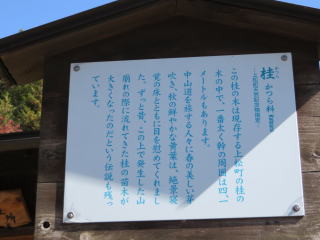 桂 かつら科
この桂の木は現存する上松町の桂の
木の中で、一番太く幹の周囲は四、一
メートルもあります。
中山道を旅する人々に春の美しい芽
吹き、秋の鮮やかな黄葉は、絶景寝
覚の床とともに目を慰めてくれまし
た。ずっと昔、この上で発生した山
崩れの際に流れてきた桂の苗木が
大きくなったのだという伝説も残っ
ています。